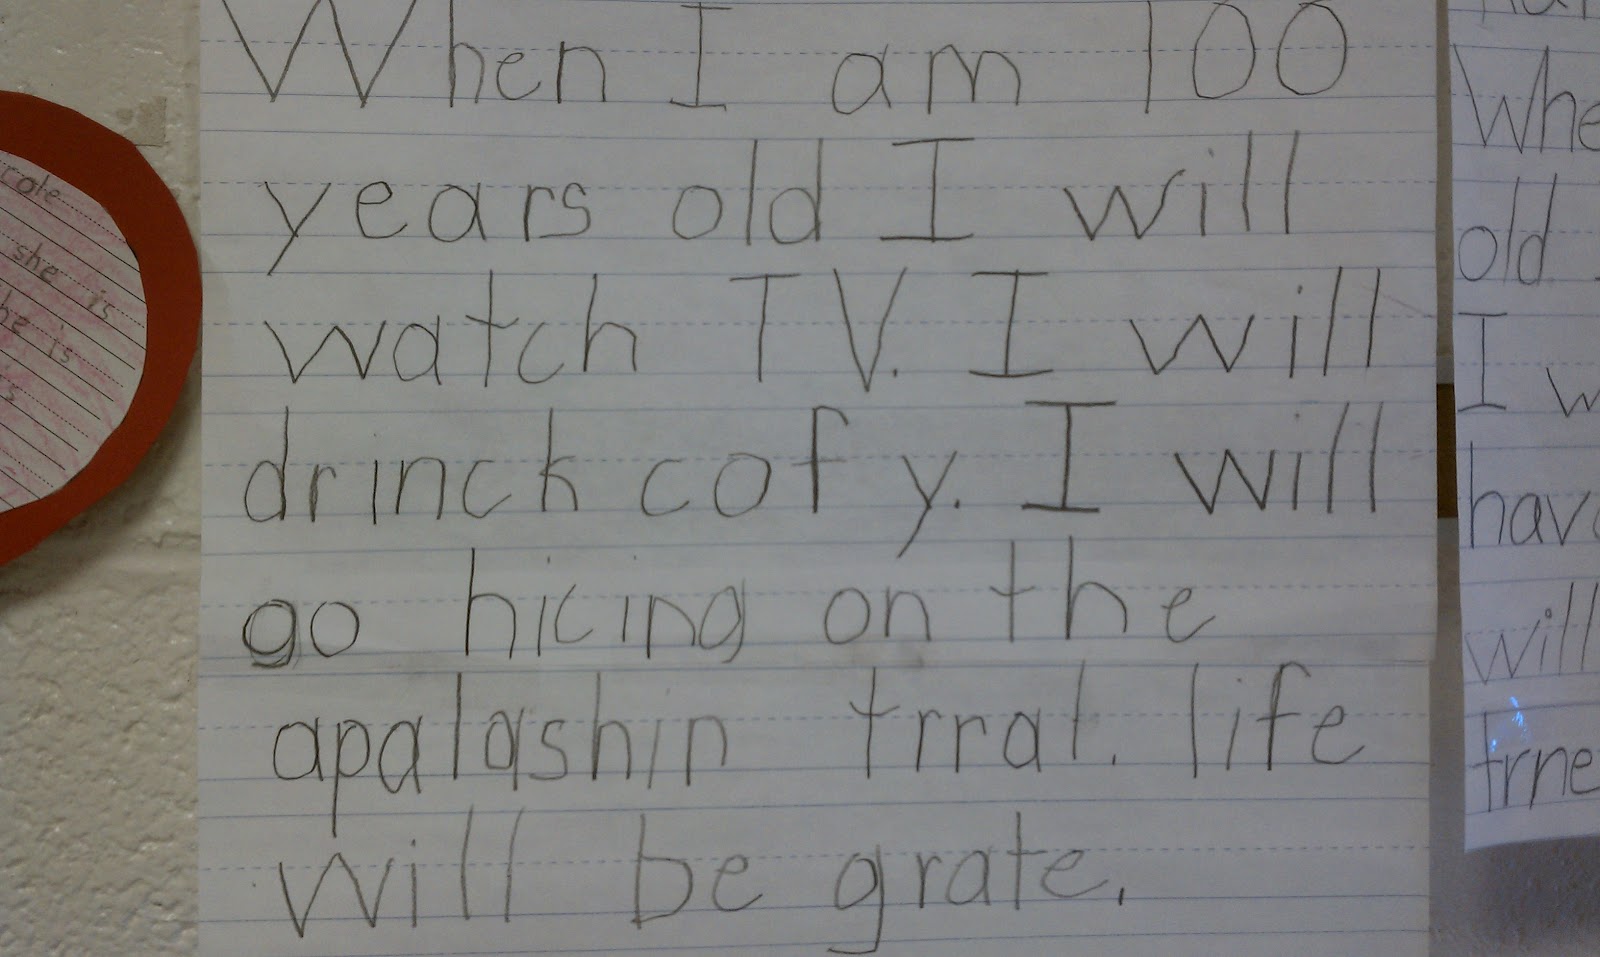 When I am 100
years old I will
watch TV. I will
drinck cofy. I will
go hicing on the
apalashin trral. life
will be grate.
she is
he is
old
I
will